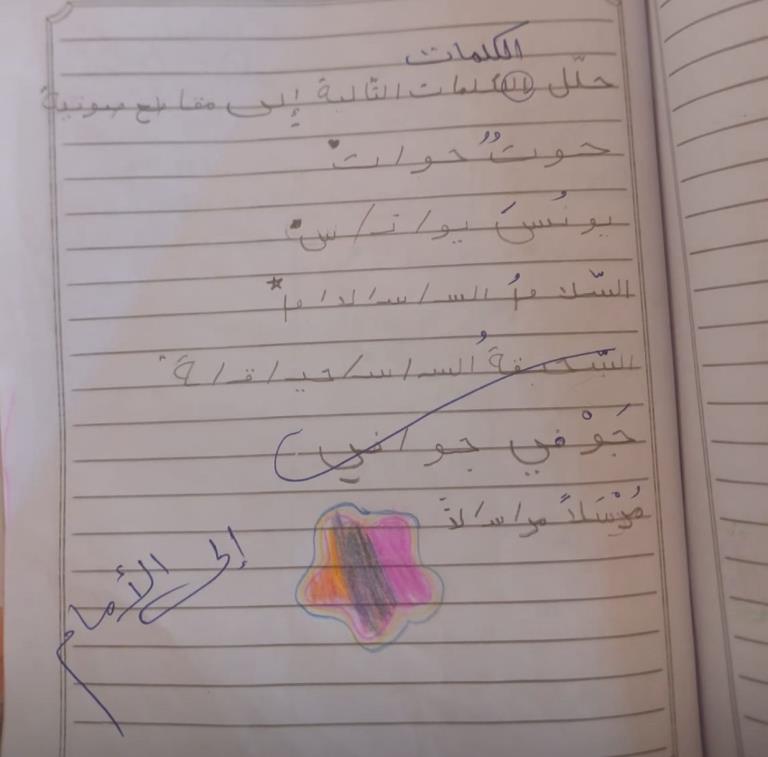 الكلمات
حلّل الكلمات التّالية إلى مقاطع صوتية
حوتٌ حو/ت
يونُسَ يو/ن/س
السّلامُ الس/سـ/لا/م
السّحيقةُ الس/سـ/حيـ/قـ/ة
جَوْفي جو/في
مُرْسَلاً مر/سـ/لاً
إلى الأمام